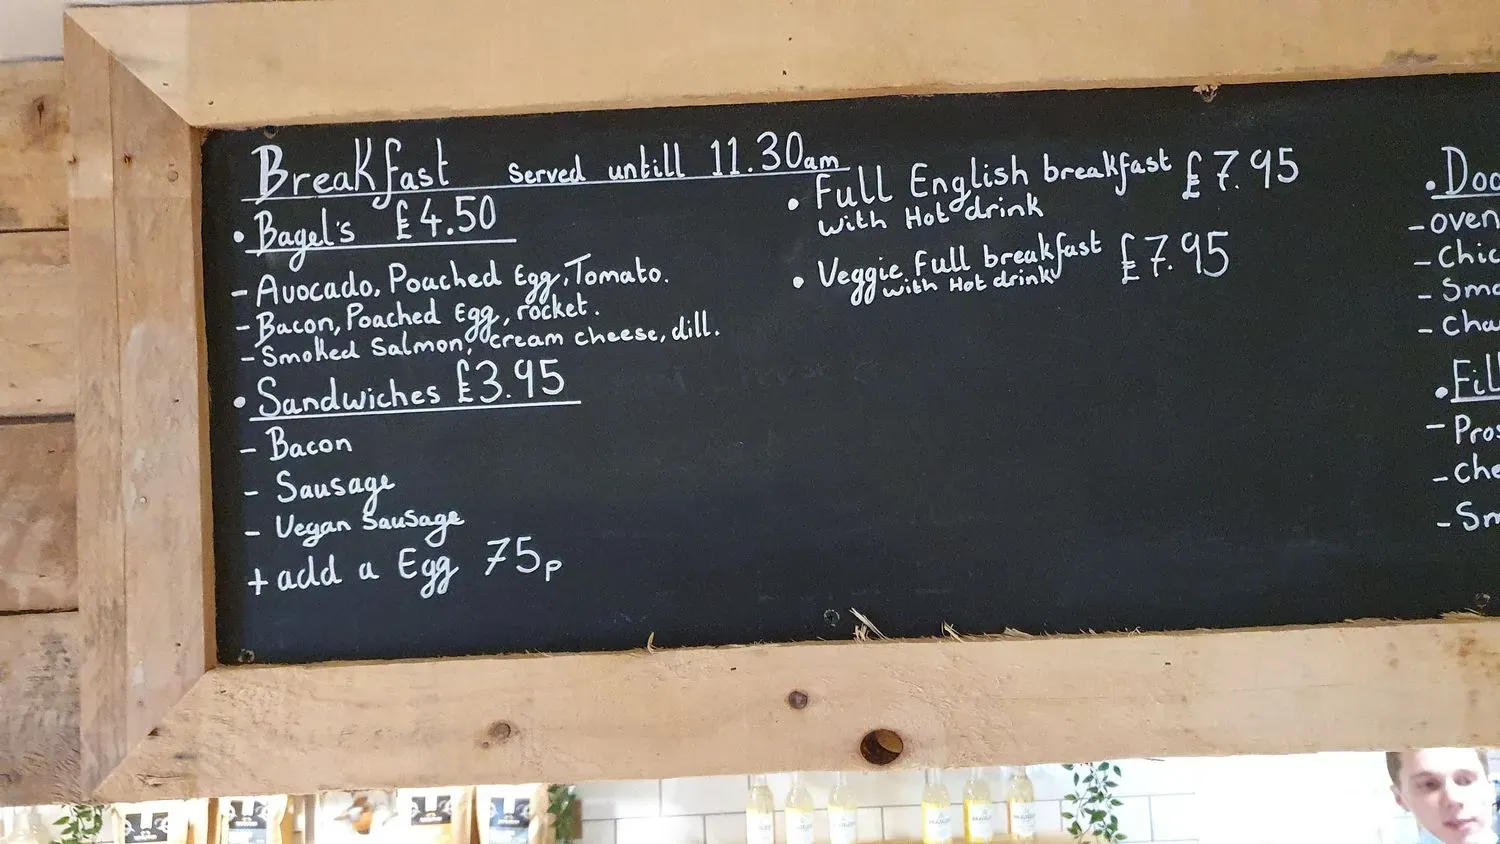 Breakfast served untill 11.30am
• Bagel's £4.50
- Avocado, Poached Egg, Tomato.
- Bacon, Poached Egg, rocket.
- Smoked Salmon, cream cheese, dill.
• Sandwiches £3.95
- Bacon
- Sausage
- Vegan Sausage
+ add a Egg 75p
• Full English breakfast £7.95
with Hot drink
• Veggie Full breakfast £7.95
with Hot drink